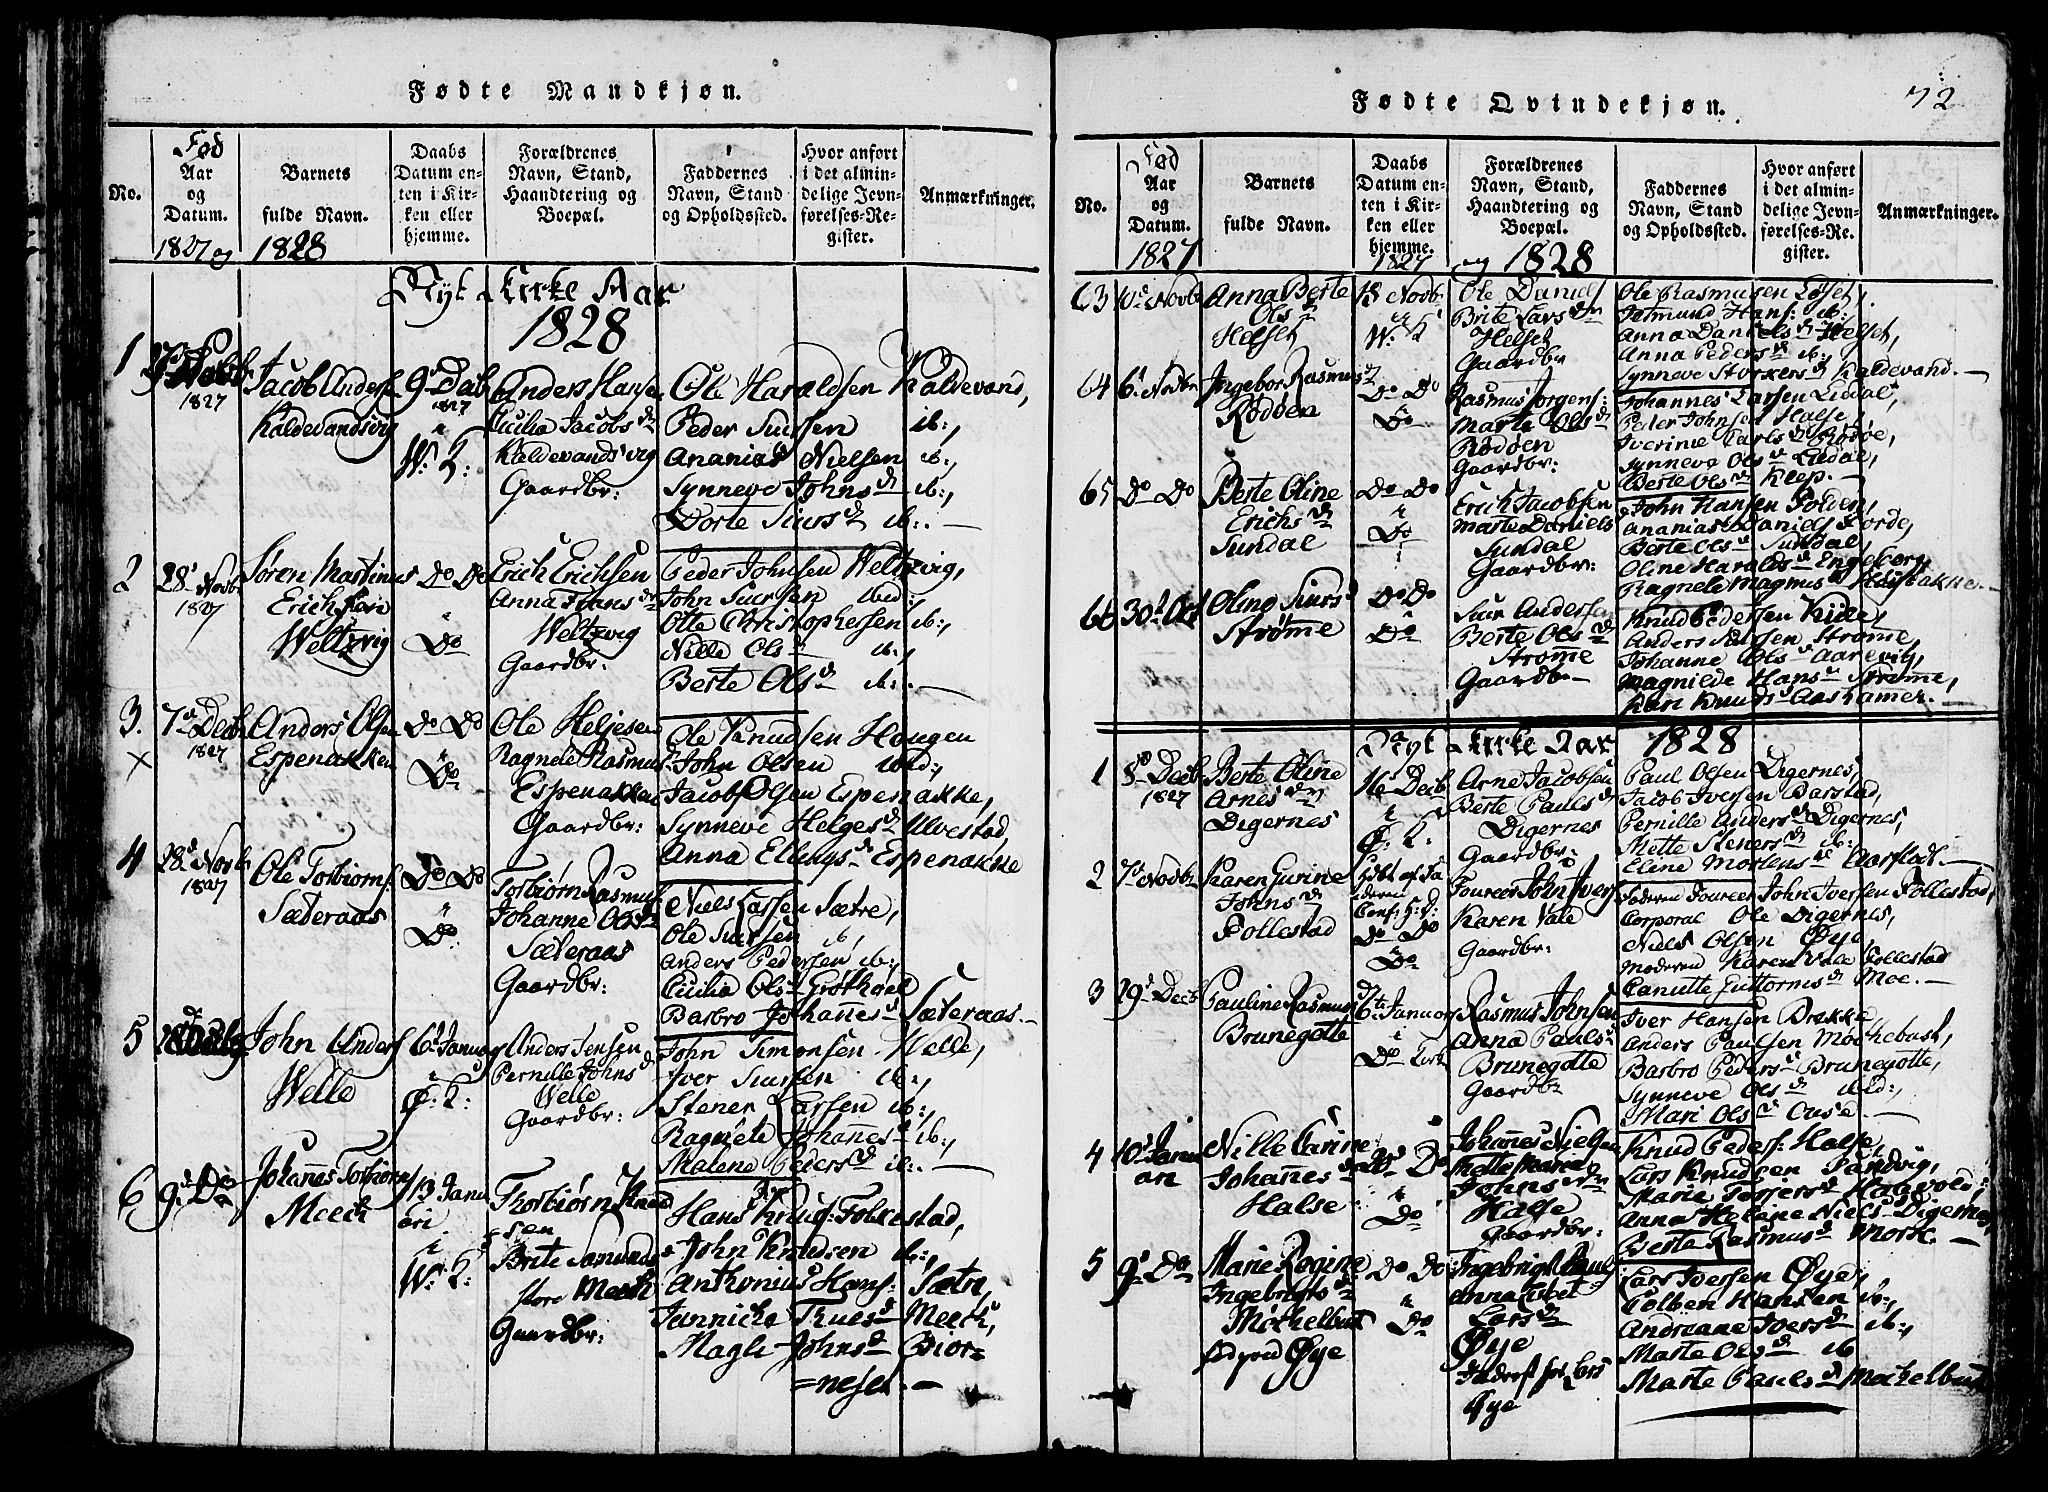 Fødte Mandkjøn.
No.
Fød
Aar
og
Datum.
1827 og
Barnets
fulde Navn.
1828
Daabs
Datum en-
ten i Kir-
ken eller
hjemme.
Forældrenes
Navn, Stand,
Haandtering og
Boepæl.
Faddernes
Navn, Stand
og Opholdssted.
Hvor anført
i det almin-
delige Jevn-
førelses-Re-
gister.
Anmærkninger.
Nyt Kirke Aar
1828
1
1827
Jacob Anders
Kaldevandsvig
9 Decb
1827
i
W: K:
Anders Hansen
Cicilia Jacobsd
Kaldevandsvig
Gaardbr:
Ole Haraldsen Kaldevand,
Peder Siursen ib:,
Ananias Nielsen ib:,
Synneve Johnsd ib:,
Dorte Siursd ib:. —
2
28 Novb
1827
Søren Martinus
Erichsen
Weltzvig
Do Do
i
Do
Erich Erichsen
Anna Hansd
Weltzvig
Gaardbr:
Peder Johnsen Weltzvig,
John Siursen ibid:,
Otte Christophersen ib:,
Nille Olsd ib:,
Berte Olsd ib:. —
3.
×
7d Decb
1827
Anders Olsen
Espenakken
Do Do
i
Do
Ole Heljesen
Ragnele Rasmus
Espenakken
Gaardbr:
Ole Knudsen Haugen
John Olsen ibid:,
Jacob Olsen Espenakke,
Synneve Helgesd Ulvestad,
Anna Ellingsd Espenakke
4
28d Novb
1827
Ole Torbiørns
Sæteraas
Do Do
i
Do.
Torbiørn Rasmus
Johanne Olsd
Sæteraas
Gaardbr:
Niels Lassen Sætre,
Ole Siursen ib,
Anders Pedersen ib:,
Cicilia Olsd Grøthoel
Barbro Johannesd Sæteraas. —
5
John Anders
Welle
6 Januar
i
Ø: K:
Anders Jensen
Pernille Johnsd
Welle
Gaardbr:
John Simonsen Welle,
Iver Siursen ib:,
Stener Larsen ib:,
Ragnele Johannesd ib:,
Malene Pedersd ib:. —
6
9d Do
Johannes Torbiørn
Meeck
13 Janu
ari
i
W: K:
Thorbiørn Knud
sen
Brite Samunds
store Meeck
Gaardbr:
Hans Knudsen Folkestad,
John Knudsen ib:,
Anthonius Hans: Sætre,
Jannicke Truesd Meeck,
Magli Johnsd Bior=
=neset. —
72
Fødte Qvindekjøn.
No.
Fød
Aar
og
Datum.
1827
Barnets
fulde Navn.
Daabs
Datum en-
ten i Kir-
ken eller
hjemme.
1827
Forældrenes
Navn, Stand,
Haandtering og
Boepæl.
og 1828
Faddernes
Navn, Stand
og Opholdssted.
Hvor anført
i det almin-
delige Jevn-
førelses-Re-
gister.
Anmærkninger.
63
Anna Berte
Olsd
Helset
18 Novb
i
W: K
Ole Daniels
Brite Larsd
Helset
Gaardbr
Ole Rasmusen Løset,
Jetmund Hans: ib:,
Anna Danielsd Helset,
Anna Pedersd ib:,
Synneve Storkersd Kaldevand. —
64
6 Novbr
Ingebor Rasmusd
Rødøen
Do Do
Do
Rasmus Jorgens:
Marte Olsd
Rødøen
Gaardbr:
Johannes Larsen Liddal,
Peder Johnsen Halse,
Iverine Carlsd Rødøe,
Synneve Olsd Liddal,
Berte Olsd Kleep. —
65
Do Do
Berte Oline
Erichsd
Sundal
Do Do
i
Do
Erich Jacobsen
Marte Daniels
Sundal
Gaardbr:
John Hansen Folden,
Ananias Daniels Førde,
Berte Olsd Sundal,
Oline Haraldsd Engeborg,
Ragnele Magnusd
66
30d Oct
Oline Siursd
Strømme
Do Do
i
Do
Siur Anders
Berte Olsd
Strømme
Gaardb —
Knud Pedersen Kile,
Anders Strømme,
Johanne Olsd Aarevig,
Magnilde Hansd Strømme,
Kari Knudsd Aashamer. —
Nyt Kirke Aar 1828
1
5d Decb
1827
Berte Oline
Arnesd
Digernes
16 Decb
i
Ø: K:
Arne Jacobsen
Berte Paulsd
Digernes
Gaardbr:
Paul Olsen Digernes,
Jacob Iversen Barstad,
Pernille Andersd Digernes,
Mette Stenersd ib:
Eline Mortensd Aarstad. —
2
7d Novbr
Karen Gurine
Johnsd
Follestad
Hdbt af Fa
deren
Conf: H: D:
Do Do
Do
Foureer John Ivers
Karen Vale
Gaardbr:
Faderen Foureer John Iversen Follestad,
Corporal Ole Digernes,
Niels Olsen Øye
Moderen Karen Vale Follestad
Canutte Guttormesd Moe. —
3
29d Decb
Pauline Rasmus
Brunegotte
6te Januar
i
Do Kirk
Rasmus Johnsen
Anna Paulsd
Brunegotte
Gaardbr
Iver Hansen Brekke,
Anders Paulsen Mockebust,
Barbro Pedersd Brunegotte,
Synneve Olsd ibid:,
Mari Olsd Aase. —
4
10d Janu
ari
Nille Carine
Johannesd
Halse
Do
i
Do
Johannes Nielsen
Mette Marie
Johnsd
Halse
Gaardbr:
Knud Peders: Halse,
Lars Knudsen Sandvig,
Marie Torjersd Hagvold,
Anna Helene Niels Digernes,
Berte Rasmusd Mork. —
5
9d Do
Marie Rogine
Ingebrigtsd
Mockelbust
fød paa Øye
Do Do
i
Do
Ingebrigt Pauls
Anna Lisbet
Larsd
Øye
Inderst hos Lars
Øye
Lars Iversen Øye,
Colben Hansen ib:,
Andreane Iversd ib:,
Marte Olsd ib
Marte Paulsd Mockelbust